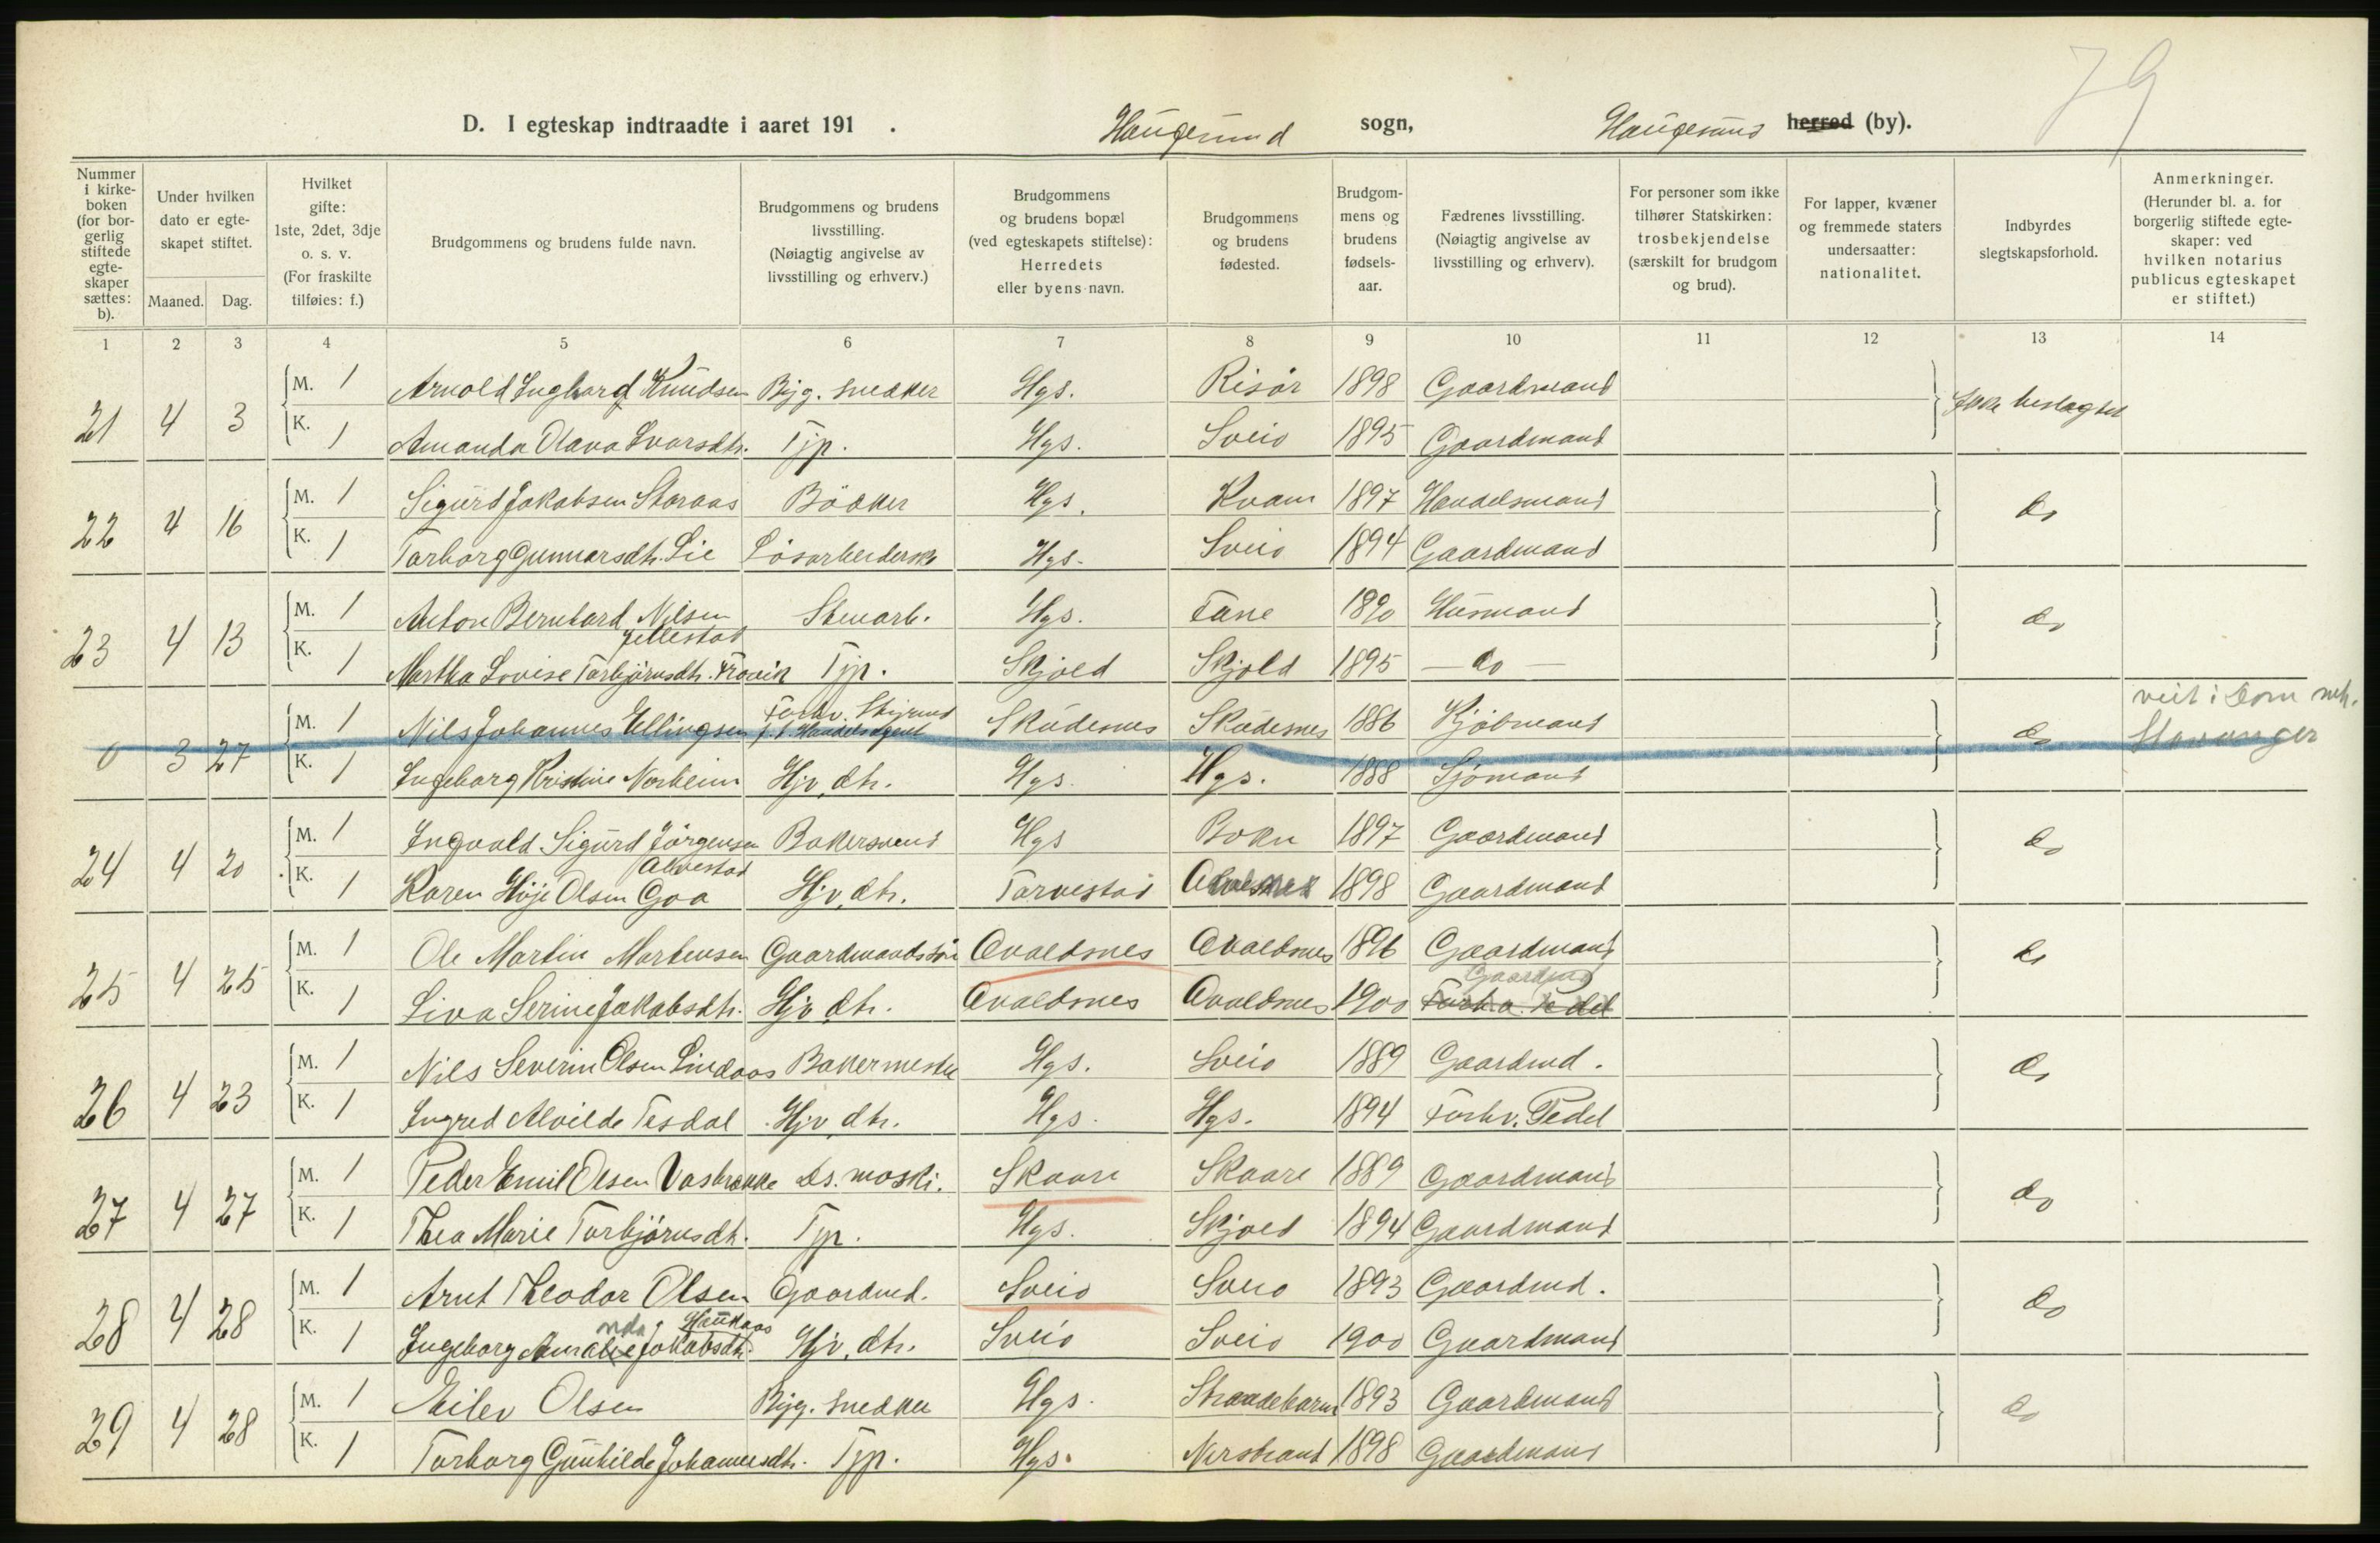 79
D. I egteskap indtraadte i aaret 191 . Haugesund sogn, Haugesund herred (by).
Nummer i kirkeboken (for borgerlig stiftede egteskaper sættes: b).
Under hvilken dato er egteskapet stiftet.
Maaned. Dag.
Hvilket gifte: 1ste, 2det, 3dje o. s. v. (For fraskilte tilføies: f.)
Brudgommens og brudens fulde navn.
Brudgommens og brudens livsstilling. (Nøiagtig angivelse av livsstilling og erhverv.)
Brudgommens og brudens bopæl (ved egteskapets stiftelse): Herredets eller byens navn.
Brudgommens og brudens fødested.
Brudgommens og brudens fødselsaar.
Fædrenes livsstilling. (Nøiagtig angivelse av livsstilling og erhverv).
For personer som ikke tilhører Statskirken: trosbekjendelse (særskilt for brudgom og brud).
For lapper, kvæner og fremmede staters undersaatter: nationalitet.
Indbyrdes slegtskapsforhold.
Anmerkninger. (Herunder bl. a. for borgerlig stiftede egteskaper: ved hvilken notarius publicus egteskapet er stiftet.)
1 2 3 4 5 6 7 8 9 10 11 12 13 14
21 4 3 M. 1 Arnold Ingvard Knudsen Byg. snedker Hgs. Risör 1898 Gaardmand Ikke beslegtet
K. 1 Amanda Olava Ivarsdtr. Tjp. Hgs. Sveio 1895 Gaardmand
22 4 16 M. 1 Sigurd Jakobsen Storaas Bödker Hgs. Kvam 1897 Handelsmand do
K. 1 Torborg Gunnarsdtr. Lie Lösarbeiderske Hgs. Sveio 1894 Gaardmand
23 4 13 M. 1 Anton Bernhard Nilsen Jellestad Stenarb. Hgs. Fane 1890 Husmand do
K. 1 Martha Lovise Torbjörnsdtr. Frovik Tjp. Skjold Skjold 1895 — do —
0 3 27 M. 1 Nils Johannes Ellingsen Forhv. Styrmd f. t. Handelsagent Skudesnes Skudesnes 1886 Kjöbmand do viet i Dom
Stavanger
K. 1 Ingeborg Kristine Norheim Hjv. dtr. Hgs. Hgs. 1888 Sjömand
24 4 20 M. 1 Ingvald Sigurd Jörgensen Alvestad Bakersvend Hgs Bokn 1897 Gaardmand do
K. 1 Karen Höje Olsen Goa Hjv. dtr. Torvestad 1898 Gaardmand
25 4 25 M. 1 Ole Martin Mortensen Gaardmandssön Avaldsnes Avaldsnes 1896 Gaardmand do
Gaardmd
K. 1 Liva Serine Jakobsdtr. Hjv. dtr. Avaldsnes Avaldsnes 1900
26 4 23 M. 1 Nils Severin Olsen Lindaas Bakermester Hgs. Sveio 1889 Gaardmd. do
K. 1 Ingred Alvilde Tesdal Hjv. dtr. Hgs. Hgs. 1894 Forhv. Pedel
27 4 27 M. 1 Peder Emil Olsen Vasbrekke ds. maski. Skaare Skaare 1889 Gaardmand do
K. 1 Thea Marie Torbjörnsdtr. Tjp. Hgs. Skjold 1894 Gaardmand
28 4 28 M. 1 Arnt Theodor Olsen Haukaas Gaardmd. Sveio Sveio 1893 Gaardmd. do
nda
K. 1 Ingeborg Amalie Jokobsdtr. Hjv. dtr. Sveio Sveio 1900 Gaardmand
29 4 28 M. 1 Eilev Olsen Byg. snedker Hgs. Strandebarm 1893 Gaardmand do
K. 1 Torborg Gunhilde Johannesdtr. Tjp. Hgs. Nerstrand 1898 Gaardmand